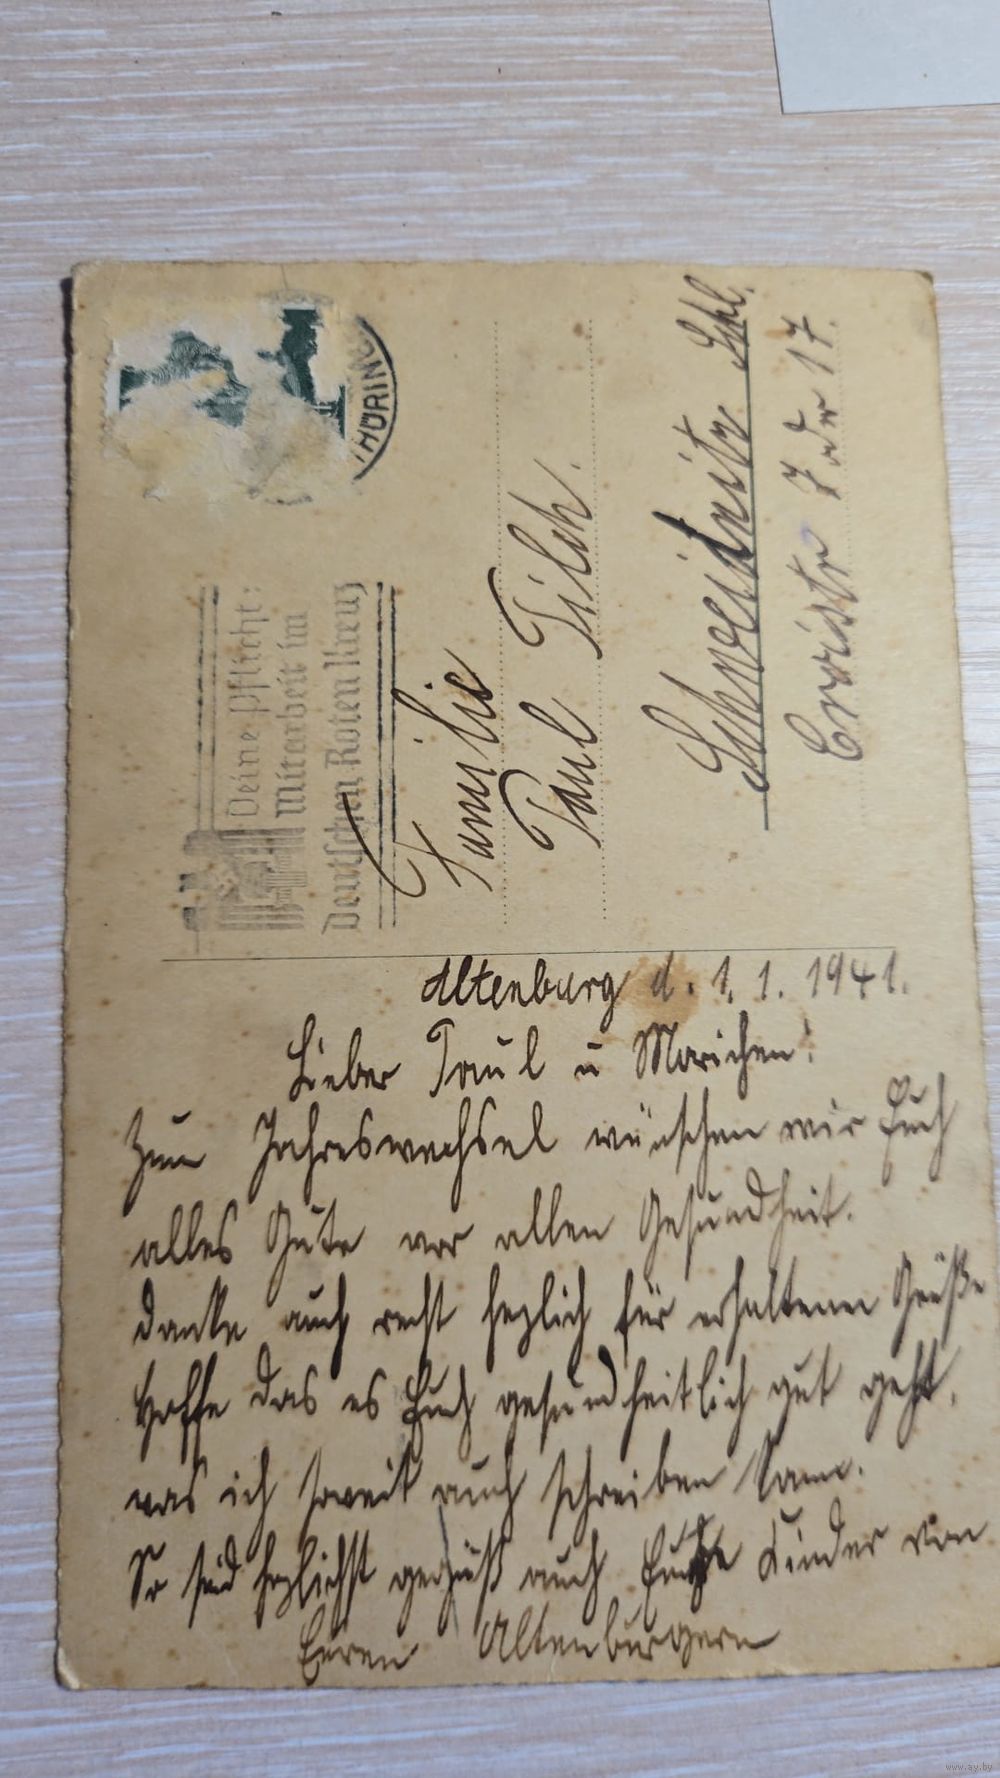 THÜRING
Deine Pflicht:
Mitarbeit im
Deutschen Roten Kreuz
Familie
Paul Tilch.
Schweidnitz Schl.
7 oder 17.
Altenburg d. 1.1.1941.
Lieber Paul u Marichen!
Zum Jahreswechsel wünschen wir Euch
alles Gute vor allen Gesundheit.
danke auch recht hezlich für erhaltenen Grüße
Hoffe das es Euch gesundheitlich gut geht.
was ich soweit auch schreiben kann.
So seid hezlichst gegrüßt auch Kinder von
Euren Altenburgern
www.ay.by